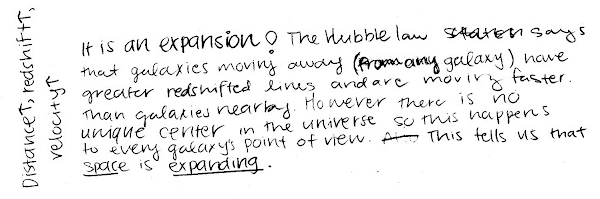 Distance↑, redshift↑,
velocity↑
It is an expansion! The Hubble law says
that galaxies moving away (from any galaxy) have
greater redshifted lines and are moving faster.
Than galaxies nearby. However there is no
unique center in the universe so this happens
to every galaxy's point of view. This tells us that
space is expanding.